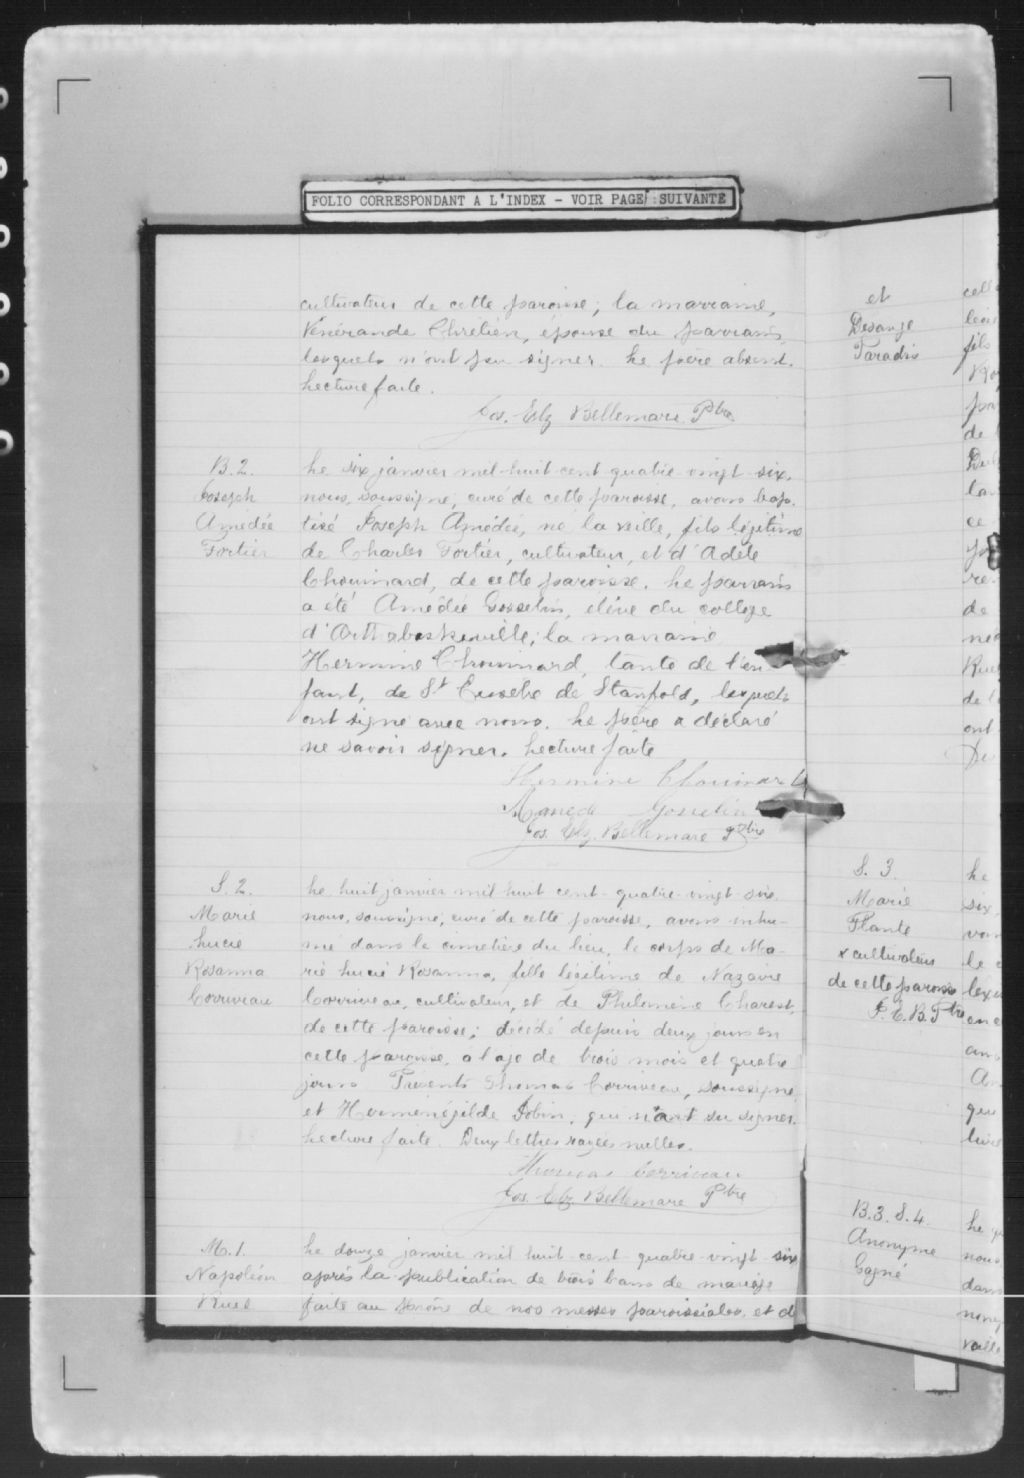 FOLIO CORRESPONDANT A L'INDEX - VOIR PAGE SUIVANTE
cultivateur de cette paroisse; la marraine,
Vénérande Chrétien, épouse du parrain,
lesquels n'ont pu signer. Le père absent.
Lecture faite.
Jos. Elz. Bellemare Ptre
B. 2.
Joseph
Amédée
Fortier
Le six janvier mil-huit-cent-quatre-vingt-six,
nous, soussigné, curé de cette paroisse, avons bap-
tisé Joseph Amédée, né la veille, fils légitime
de Charles Fortier, cultivateur, et d'Adèle
Chouinard, de cette paroisse. Le parrain
a été Amédée Gosselin, élève du collège
d'Arthabaskaville; la marraine
Hermine Chouinard, tante de l'en-
fant, de St Eusèbe de Stanfold, lesquels
ont signé avec nous. Le père a déclaré
ne savoir signer. Lecture faite
Hermine Chouinard
Gosselin
Jos. Elz. Bellemare Ptre
S. 2.
Marie
Lucie
Rosanna
Corriveau
Le huit janvier mil-huit-cent-quatre-vingt-six,
nous, soussigné, curé de cette paroisse, avons inhu-
mé dans le cimetière du lieu, le corps de Ma-
rie Lucie Rosanna, fille légitime de Nazaire
Corriveau, cultivateur, et de Philomène Charest,
de cette paroisse; décédé depuis deux jours en
cette paroisse, à l'age de trois mois et quatre
jours Présents Thomas Corriveau, soussigné,
et Herménégilde Jobin, qui n'ont su signer.
Lecture faite. Deux lettres rayées nulles.
Thomas Corriveau
Jos. Elz. Bellemare Ptre
M. 1.
Napoléon
Ruel
Le douze janvier mil-huit-cent-quatre-vingt-six
après la publication de trois bans de mariage
faite au prône de nos messes paroissiales, et d
et
Desange
Paradis
S. 3.
Marie
Plante
x cultivateur
de cette paroisse
J. E. B. Ptre
B. 3. S. 4.
Anonyme
Gagné